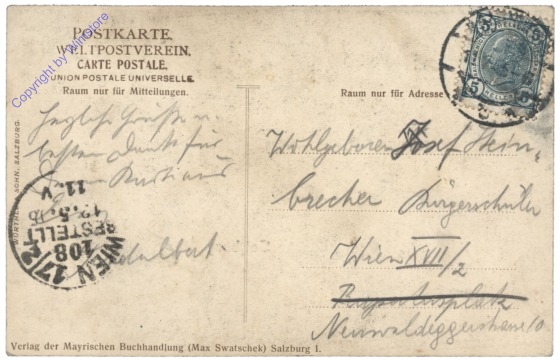 POSTKARTE.
WELTPOSTVEREIN.
CARTE POSTALE.
UNION POSTALE UNIVERSELLE.
Raum nur für Mitteilungen.
Raum nur für Adresse
Copyright by WinStore
WÜRTHLE & SOHN, SALZBURG.
5 5
5 HELLER 5
Herzliche Grüße u.
besten Dank für
Adalbert
WIEN 17/2
108
BESTELLT
11. V
Wohlgeboren Josef Stein-
brecher Bürgerschüler
Wien XVII/2
Neuwaldeggerstrasse 10
Verlag der Mayrischen Buchhandlung (Max Swatschek) Salzburg I.